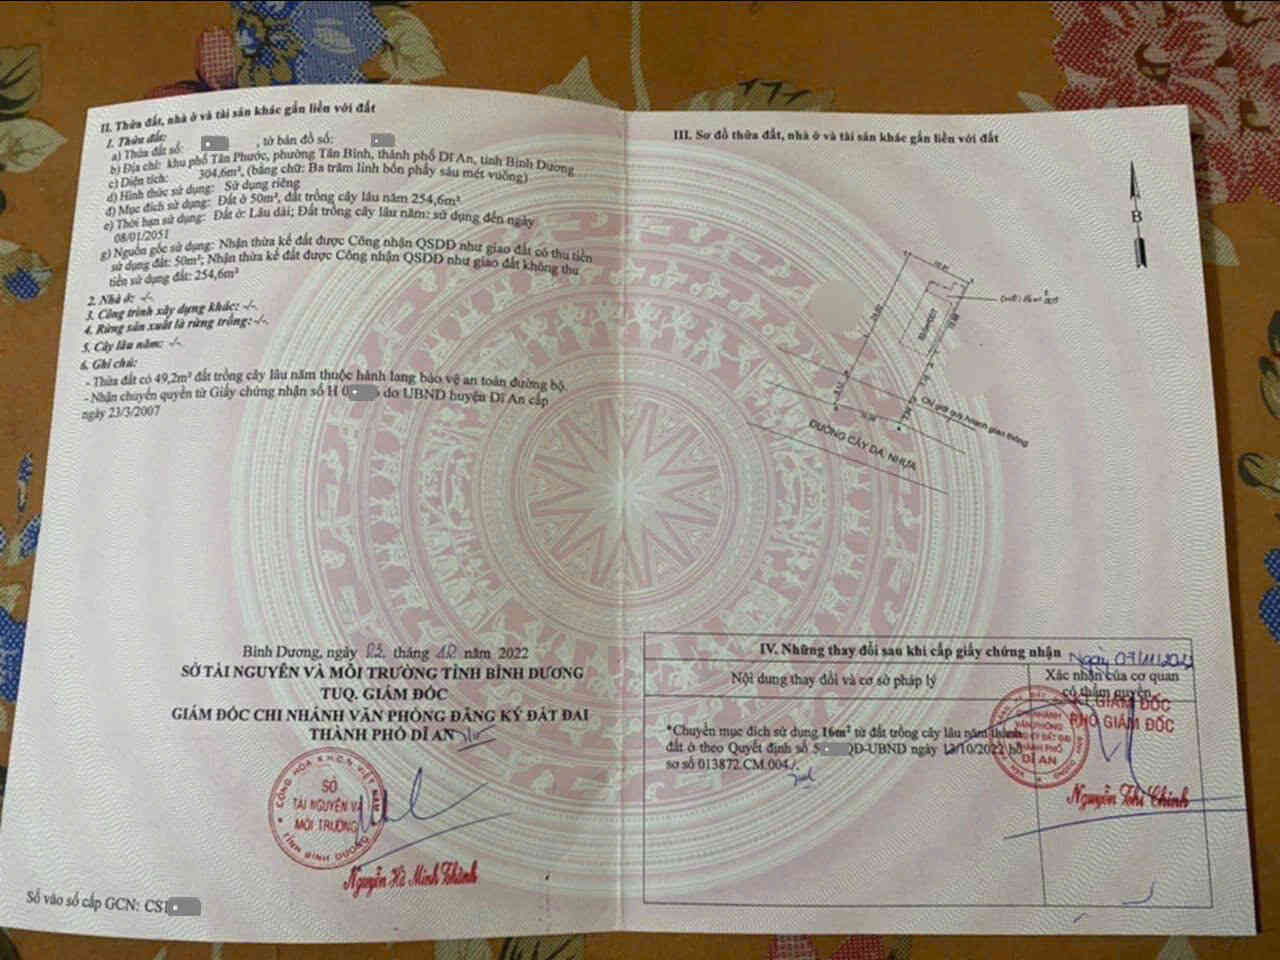 II. Thửa đất, nhà ở và tài sản khác gắn liền với đất
1. Thửa đất:
a) Thửa đất số: , tờ bản đồ số:
b) Địa chỉ: khu phố Tân Phước, phường Tân Bình, thành phố Dĩ An, tỉnh Bình Dương
c) Diện tích: 304,6m², (bằng chữ: Ba trăm linh bốn phẩy sáu mét vuông)
d) Hình thức sử dụng: Sử dụng riêng
đ) Mục đích sử dụng: Đất ở 50m², đất trồng cây lâu năm 254,6m²
e) Thời hạn sử dụng: Đất ở: Lâu dài; Đất trồng cây lâu năm: sử dụng đến ngày
08/01/2051
g) Nguồn gốc sử dụng: Nhận thừa kế đất được Công nhận QSDĐ như giao đất có thu tiền
sử dụng đất: 50m²; Nhận thừa kế đất được Công nhận QSDĐ như giao đất không thu
tiền sử dụng đất: 254,6m²
2. Nhà ở: -/-.
3. Công trình xây dựng khác: -/-.
4. Rừng sản xuất là rừng trồng: -/-.
5. Cây lâu năm: -/-.
6. Ghi chú:
- Thửa đất có 49,2m² đất trồng cây lâu năm thuộc hành lang bảo vệ an toàn đường bộ.
- Nhận chuyển quyền từ Giấy chứng nhận số H 0 do UBND huyện Dĩ An cấp
ngày 23/3/2007
Bình Dương, ngày tháng năm 2022
SỞ TÀI NGUYÊN VÀ MÔI TRƯỜNG TỈNH BÌNH DƯƠNG
TUQ. GIÁM ĐỐC
GIÁM ĐỐC CHI NHÁNH VĂN PHÒNG ĐĂNG KÝ ĐẤT ĐAI
THÀNH PHỐ DĨ AN
CỘNG HÒA X.H.C.N VIỆT NAM
SỞ
TÀI NGUYÊN VÀ
MÔI TRƯỜNG
TỈNH BÌNH DƯƠNG
Nguyễn Hà Minh Thành
Số vào sổ cấp GCN: CS1
III. Sơ đồ thửa đất, nhà ở và tài sản khác gắn liền với đất
B
Chỉ giới quy hoạch giao thông
ĐƯỜNG CÂY DA, NHỰA
IV. Những thay đổi sau khi cấp giấy chứng nhận
Nội dung thay đổi và cơ sở pháp lý
Xác nhận của cơ quan
có thẩm quyền
*Chuyển mục đích sử dụng 16m² từ đất trồng cây lâu năm thành
đất ở theo Quyết định số 5 QĐ-UBND ngày 12/10/2022 hồ
sơ số 013872.CM.004./.
KT.GIÁM ĐỐC
PHÓ GIÁM ĐỐC
CHI NHÁNH
VĂN PHÒNG
ĐĂNG KÝ ĐẤT ĐAI
THÀNH PHỐ
DĨ AN
Nguyễn Thị Chinh